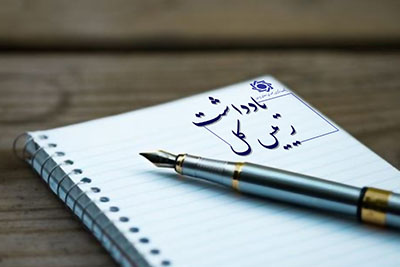 یادداشت
رییس کل